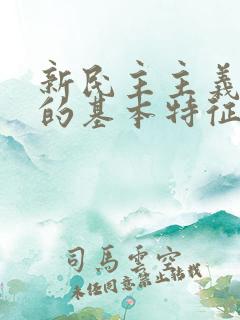 新民主主義
的基本特征
司馬雲空
未经同意禁止转载